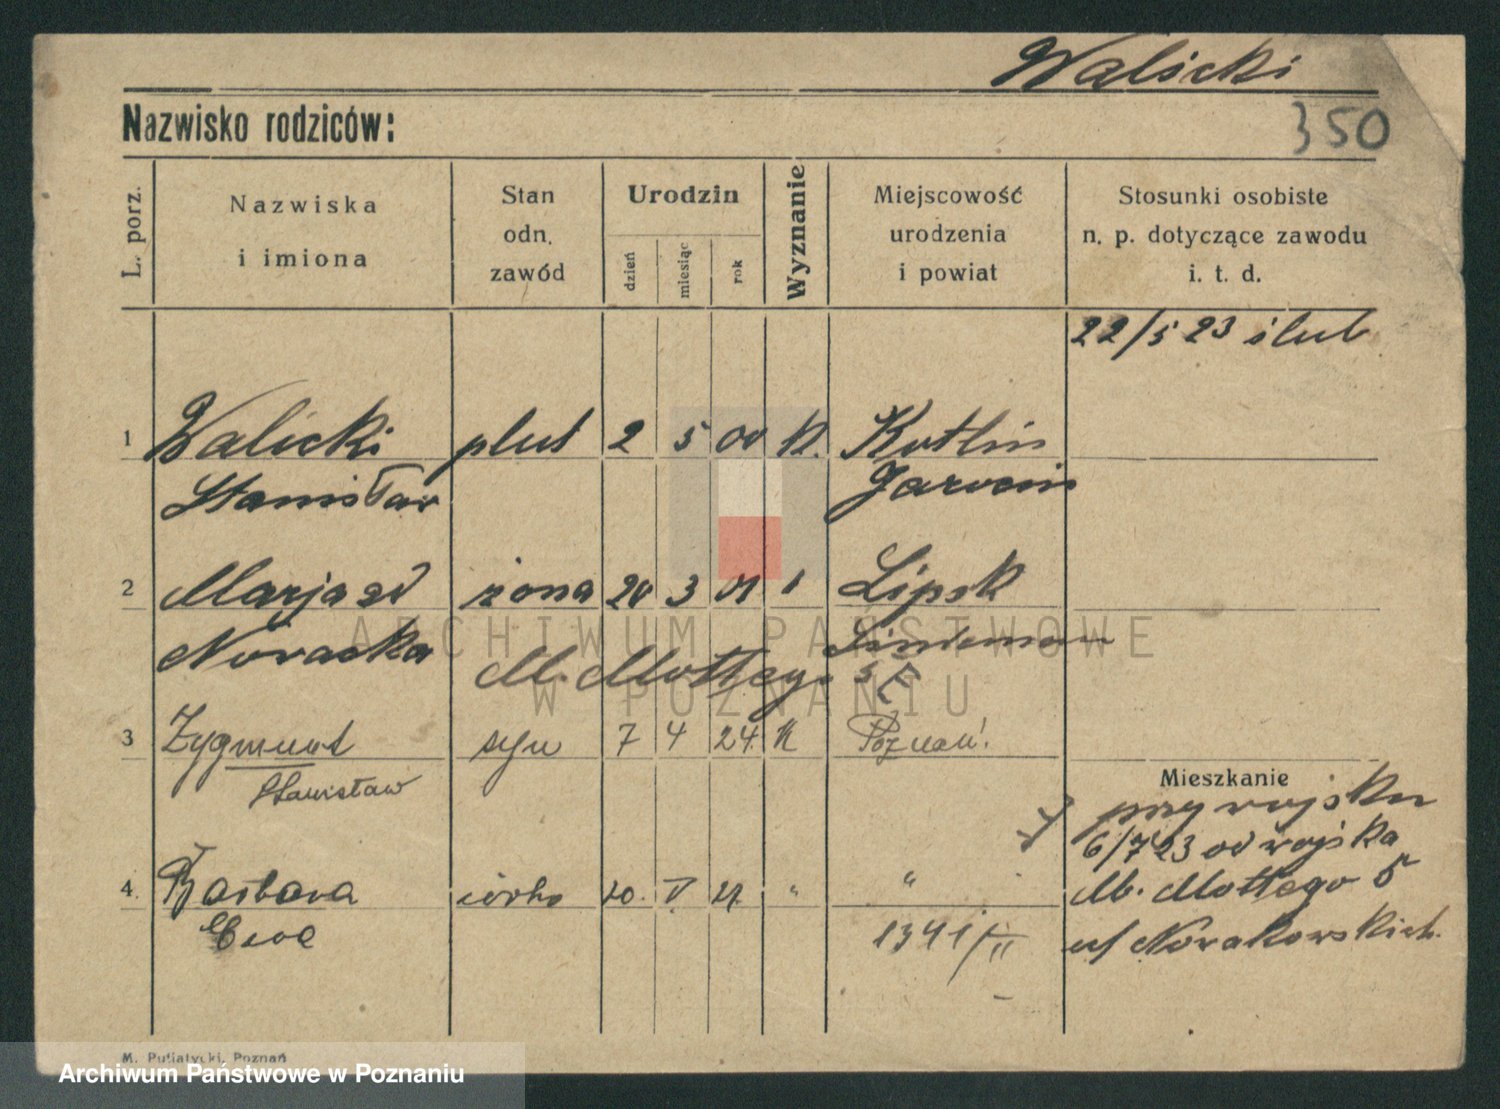 Walicki
Nazwisko rodziców:
350
L. porz.
Nazwiska
i imiona
Stan
odn.
zawód
Urodzin
dzień
miesiąc
rok
Wyznanie
Miejscowość
urodzenia
i powiat
Stosunki osobiste
n. p. dotyczące zawodu
i. t. d.
22/5 23 ślub
1 Walicki plut 2 5 00 K. Kotlin
Stanisław Jarocin
2 Marja żona 3 01 Lipsk
Noracka
M. Mottego 5
3 Zygmunt syn 7 4 24. K Poznań.
Stanisław
Mieszkanie
przy wojsku
6/7 23 od wojska
4. Barbara córka 20. V " "
Ewa
M. Mottego 5
1341/II
u/ Norakowskich.
M. Putiatycki, Poznań
ARCHIWUM PAŃSTWOWE
W POZNANIU
Archiwum Państwowe w Poznaniu